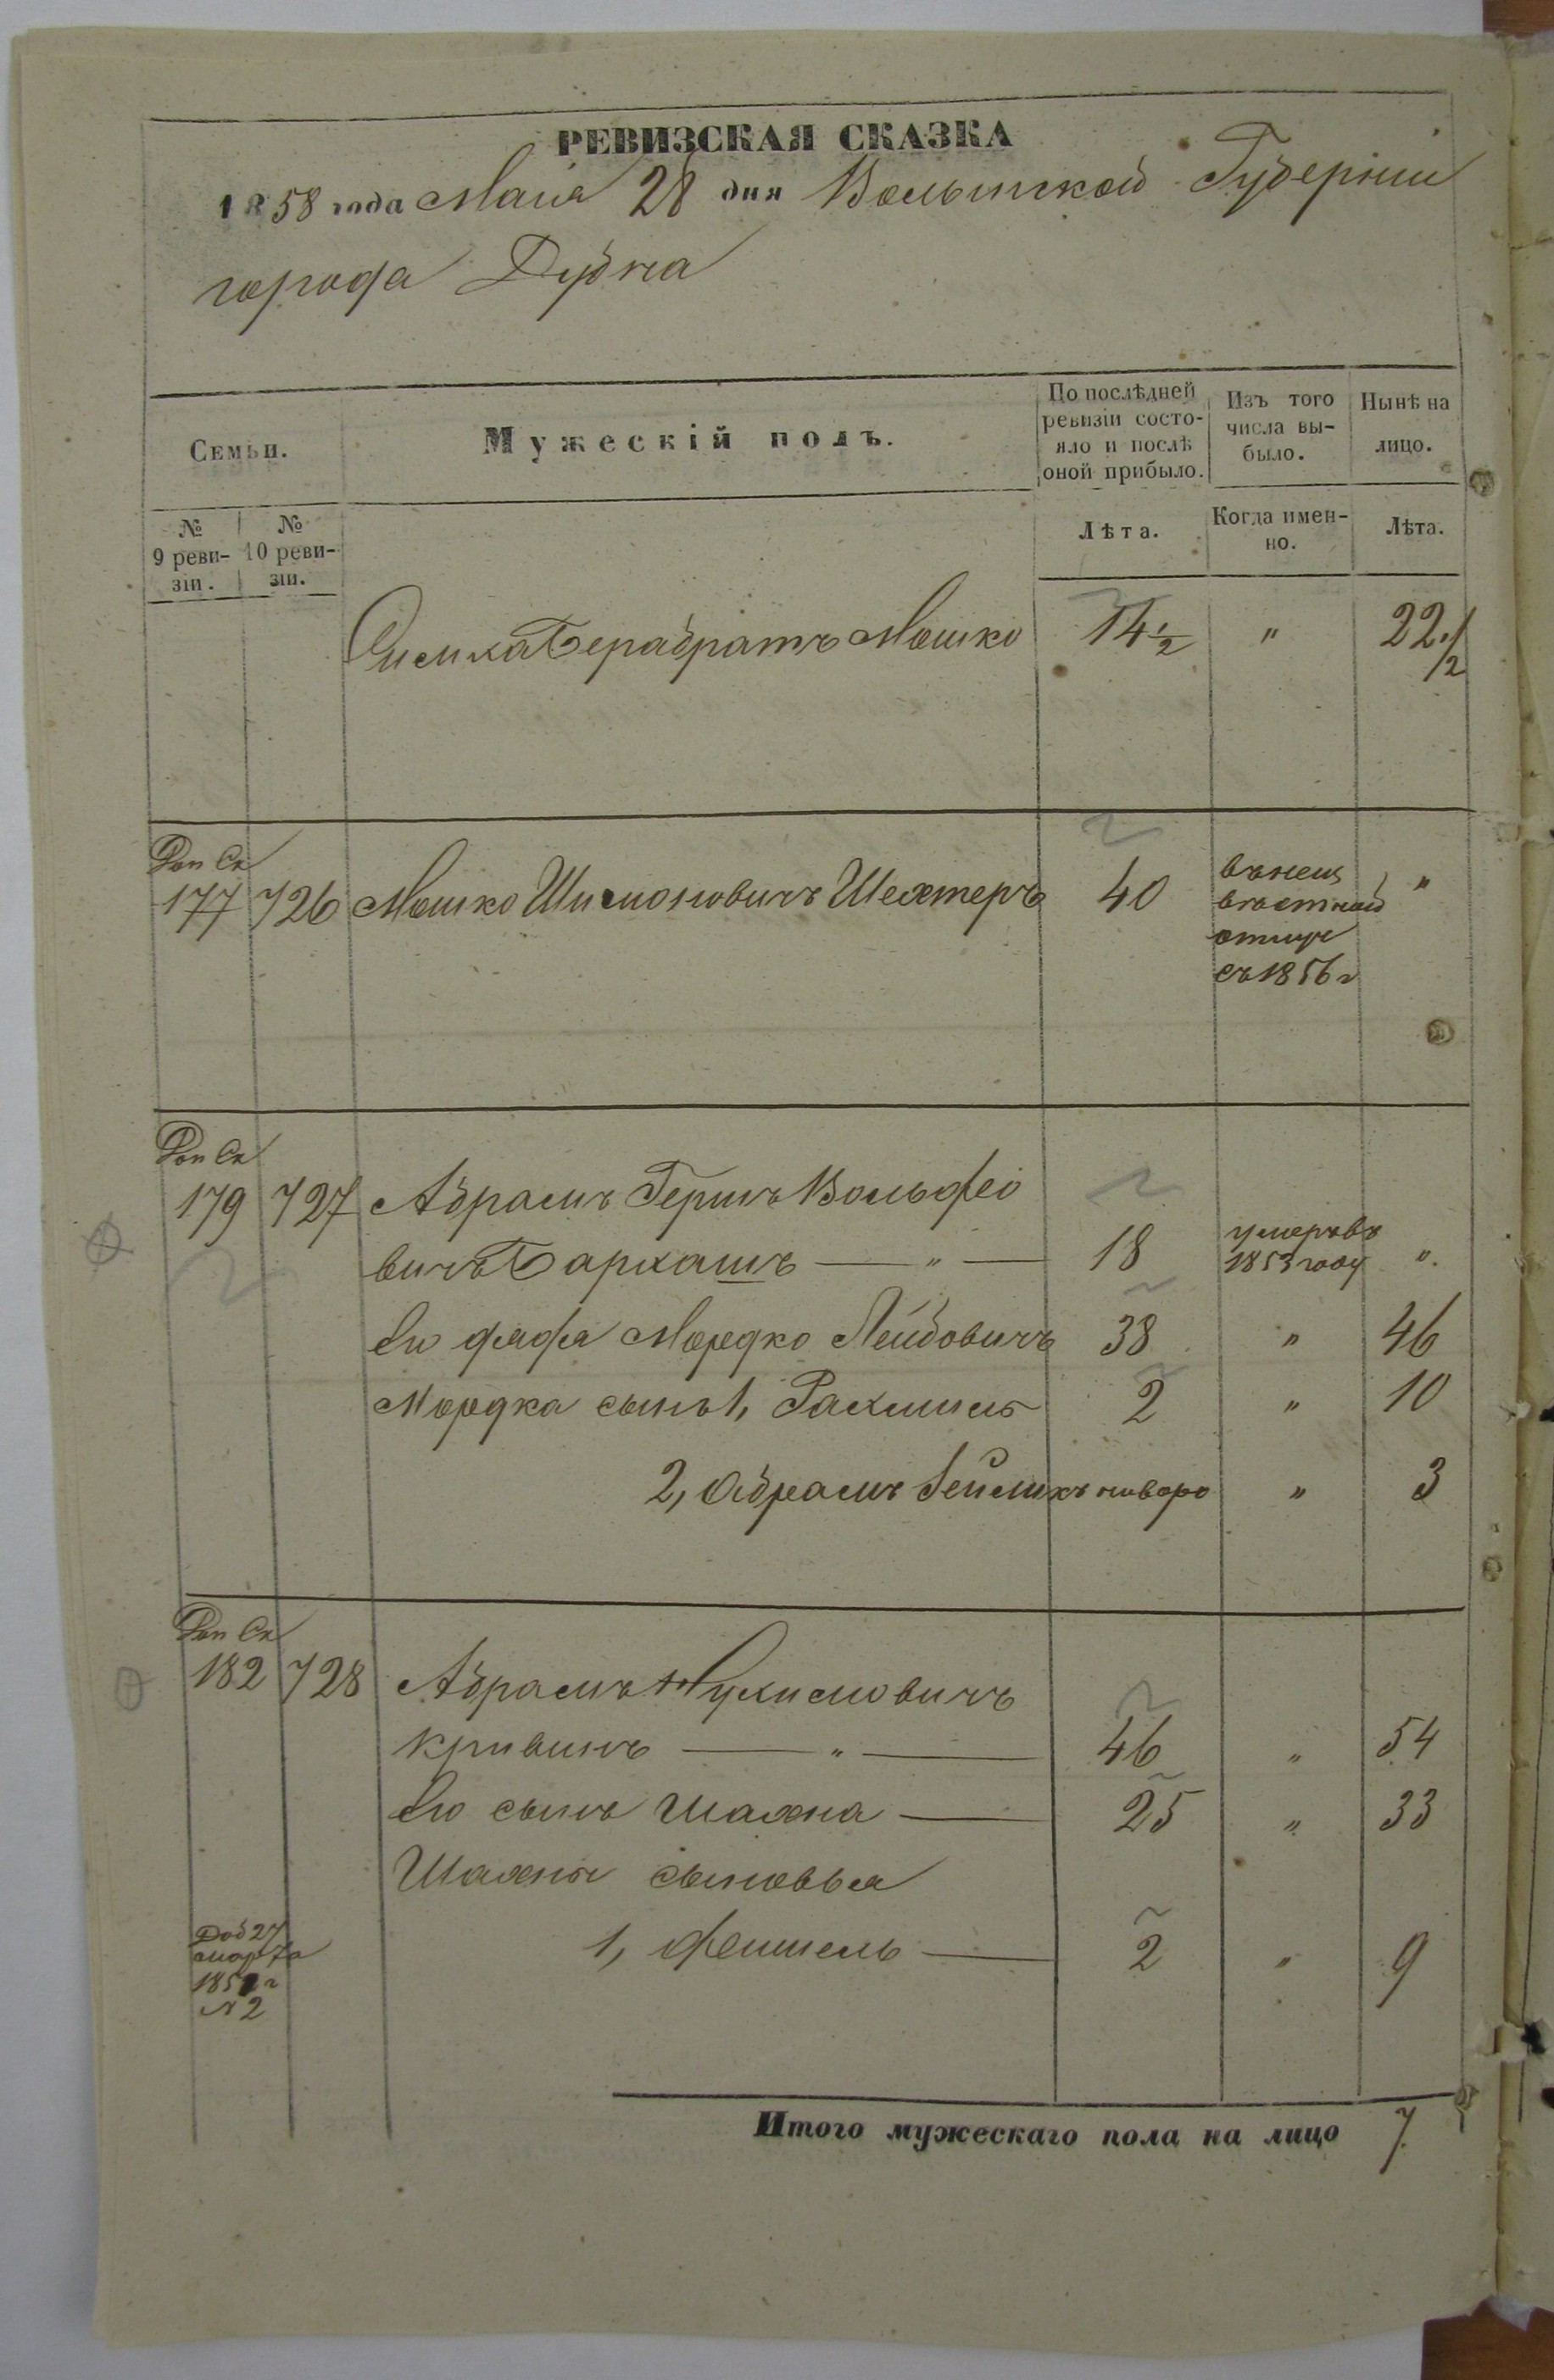 РЕВИЗСКАЯ СКАЗКА
1858 года Маія 28 дня Волынской Губерніи
города Дубна
Семьи.
Мужескій полъ.
По послѣдней ревизіи состо-
яло и послѣ
оной прибыло.
Изъ того
числа вы-
было.
Нынѣ на
лицо.
№
9 реви-
зіи.
№
10 реви-
зіи.
Лѣта.
Когда имен-
но.
Лѣта.
Бера братъ Мошко 14 1/2 " 22 1/2
Доп Ск
177 726 Мошко Шимоновичъ Шехтеръ 40 "
въ неиз
вѣстной
отлуч
съ 1856 г
Доп Ск
179 727 Абрамъ Гершъ Вольфо
вичъ Бархашъ — " — 18 умеръ въ
1853 году ".
Его дядя Мордко Лейбовичъ 38 " 46
Мордка сынъ 1, Рахмиль 2 " 10
2, Абрамъ Зейликъ новоро " 3
Доп Ск
182 728 Абрамъ Нухимовичъ
Кривинъ — " — 46 " 54
Его сынъ Шахна — 25 " 33
Шахны сыновья
1, Фишель — 2 " 9
Доб 27
марта
1851 г
№ 2
Итого мужескаго пола на лицо 7.